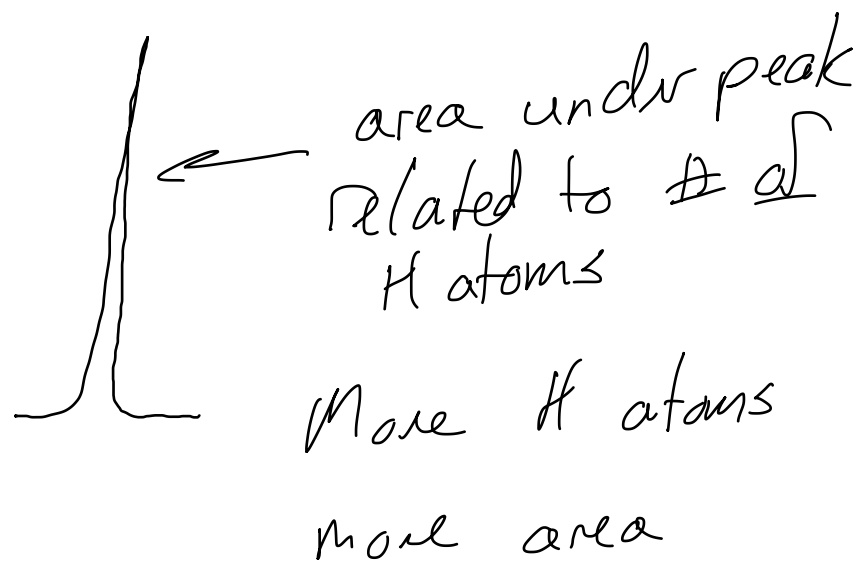 area under peak
related to # of
H atoms
More H atoms
more area